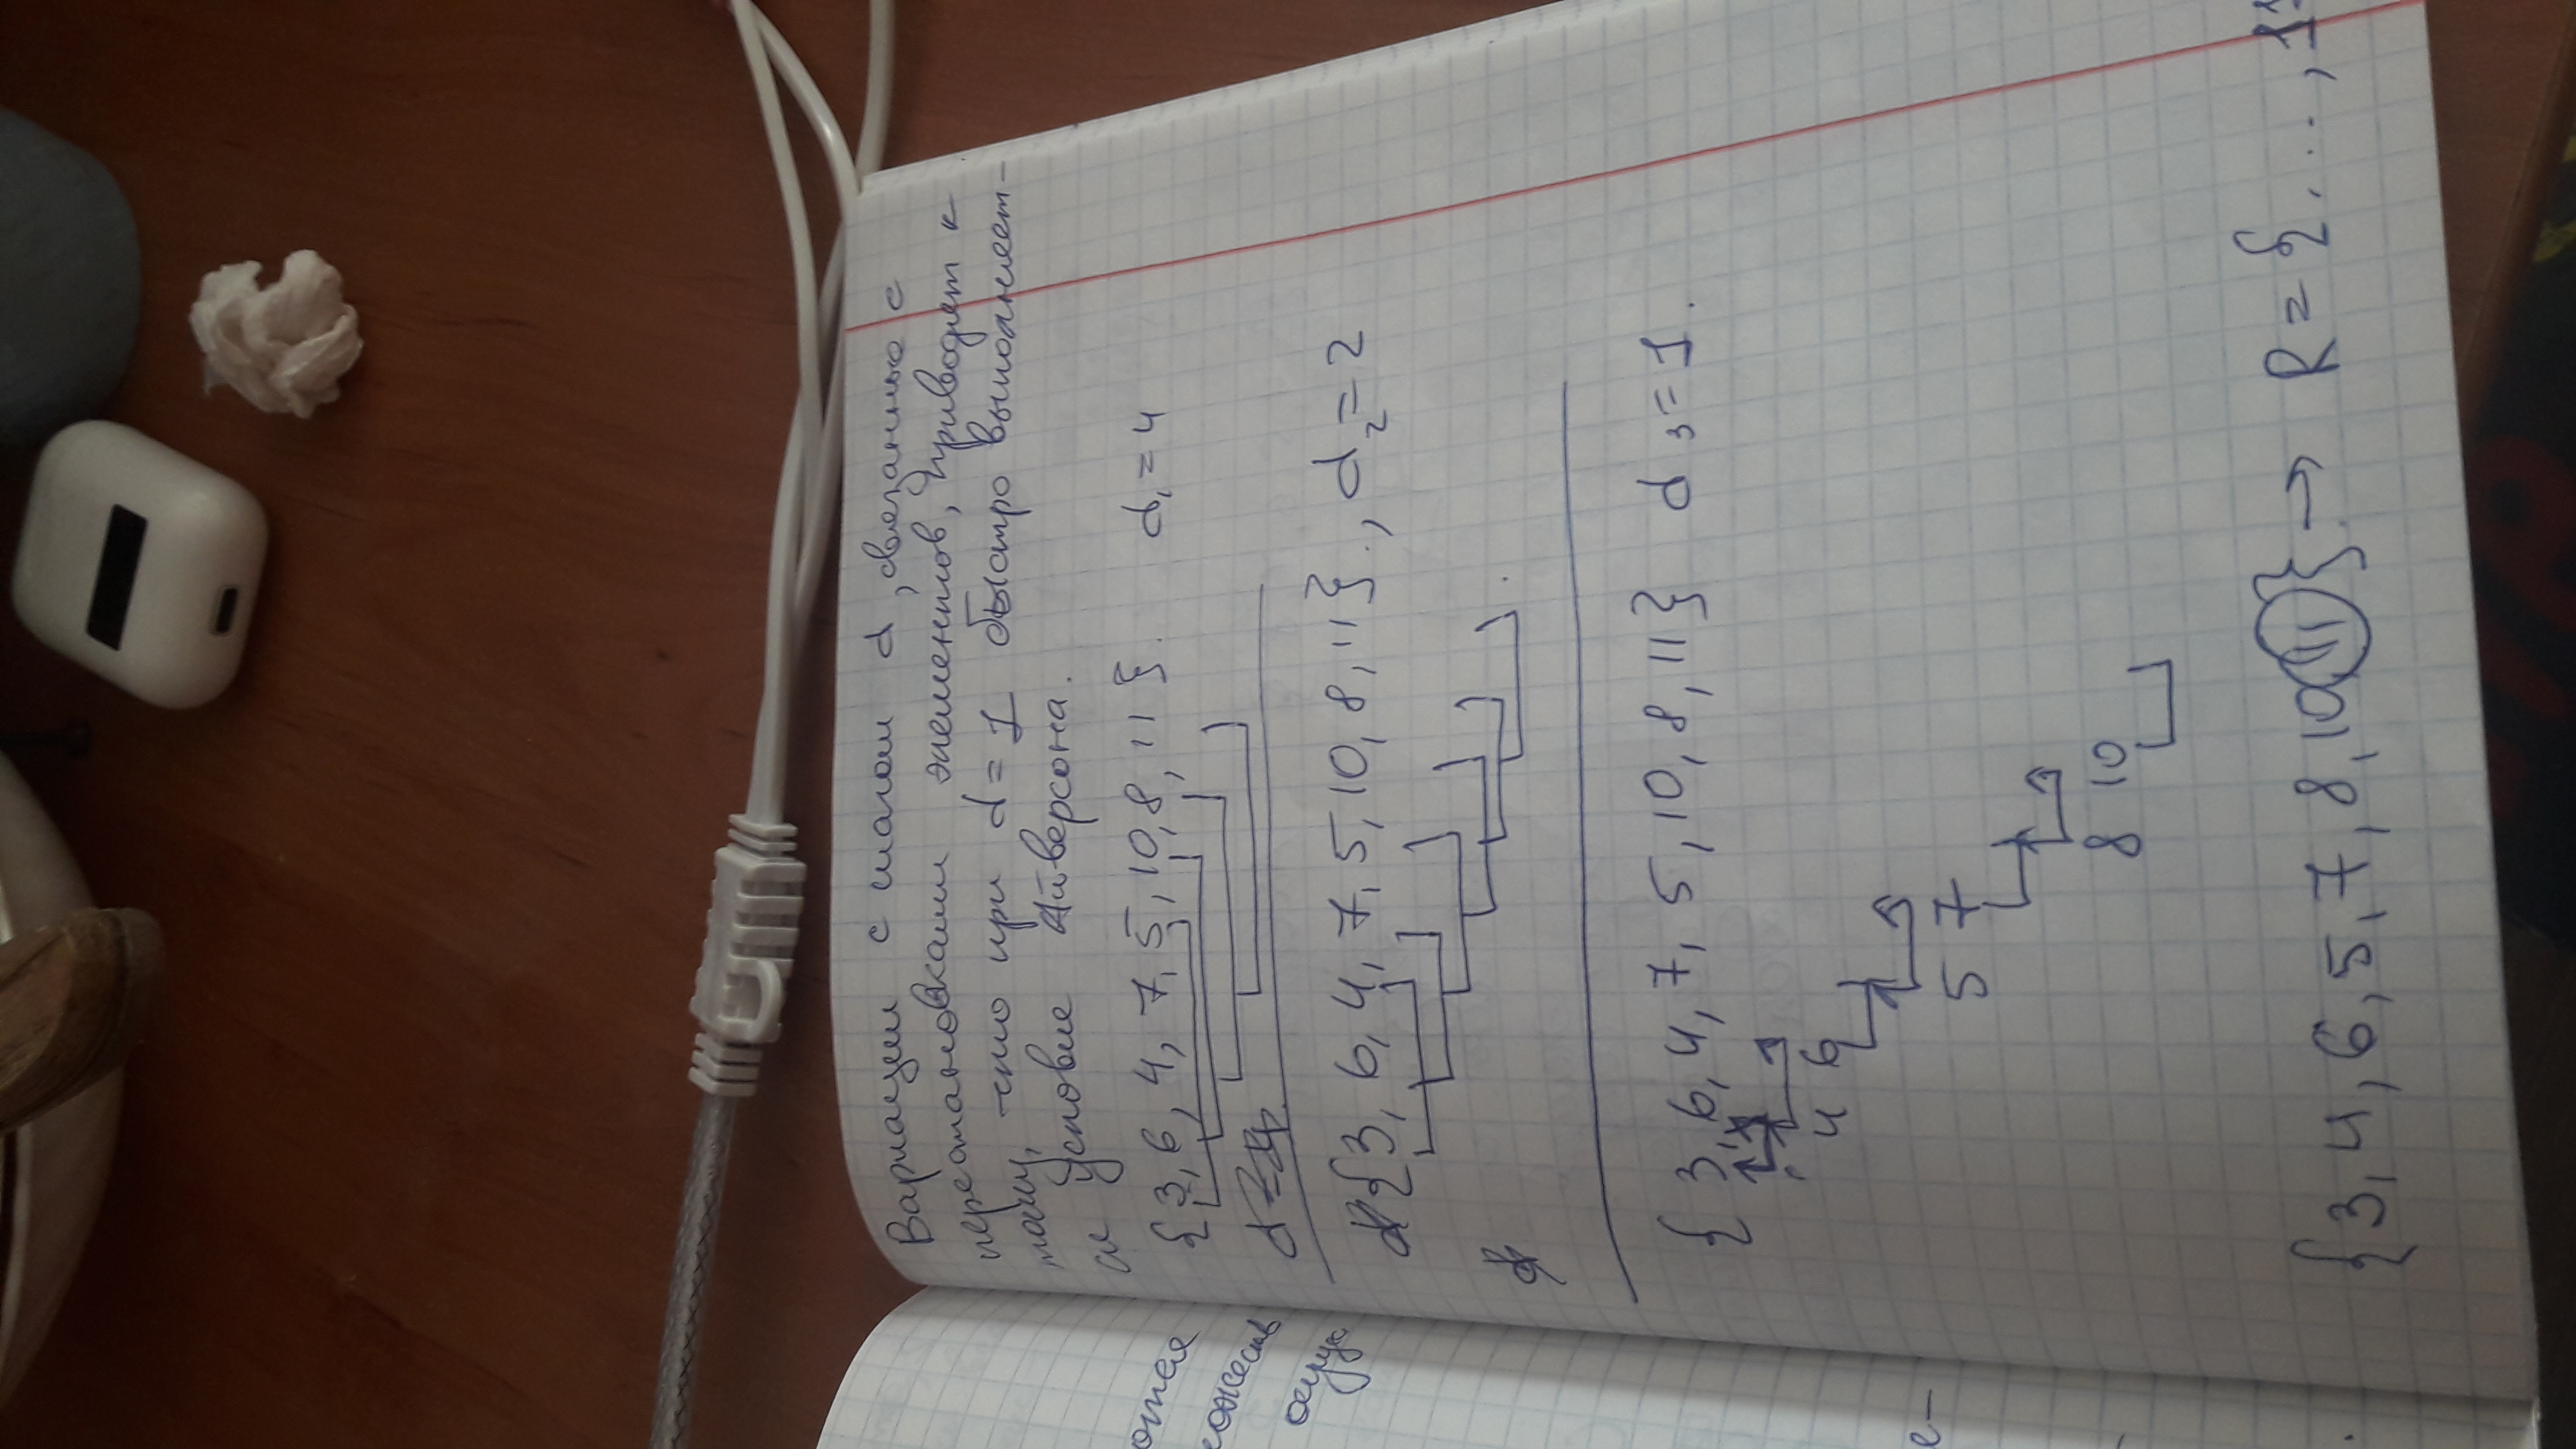 Вариации с шагом d, связанные с
перестановками элементов, приводят к
тому, что при d = 1 быстро выполняет-
ся условие Айверсона.
{3, 6, 4, 7, 5, 10, 8, 11}. d₁ = 4
{3, 6, 4, 7, 5, 10, 8, 11}., d₂ = 2
{3, 6, 4, 7, 5, 10, 8, 11} d₃ = 1.
4 6
5 7
8 10
{3, 4, 6, 5, 7, 8, 10, 11}. → R = {...., 11